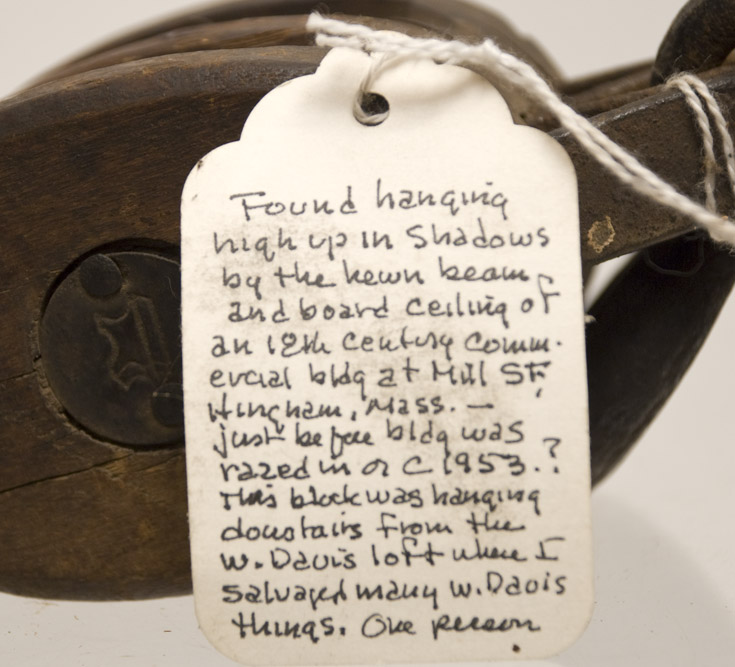 Found hanging
high up in Shadows
by the hewn beam
and board ceiling of
an 18th century comm-
ercial bldg at Mill St,
Hingham, Mass. —
just before bldg was
razed in or C 1953.?
This block was hanging
doustairs from the
W. Davis loft where I
salvaged many W. Davis
things. One person